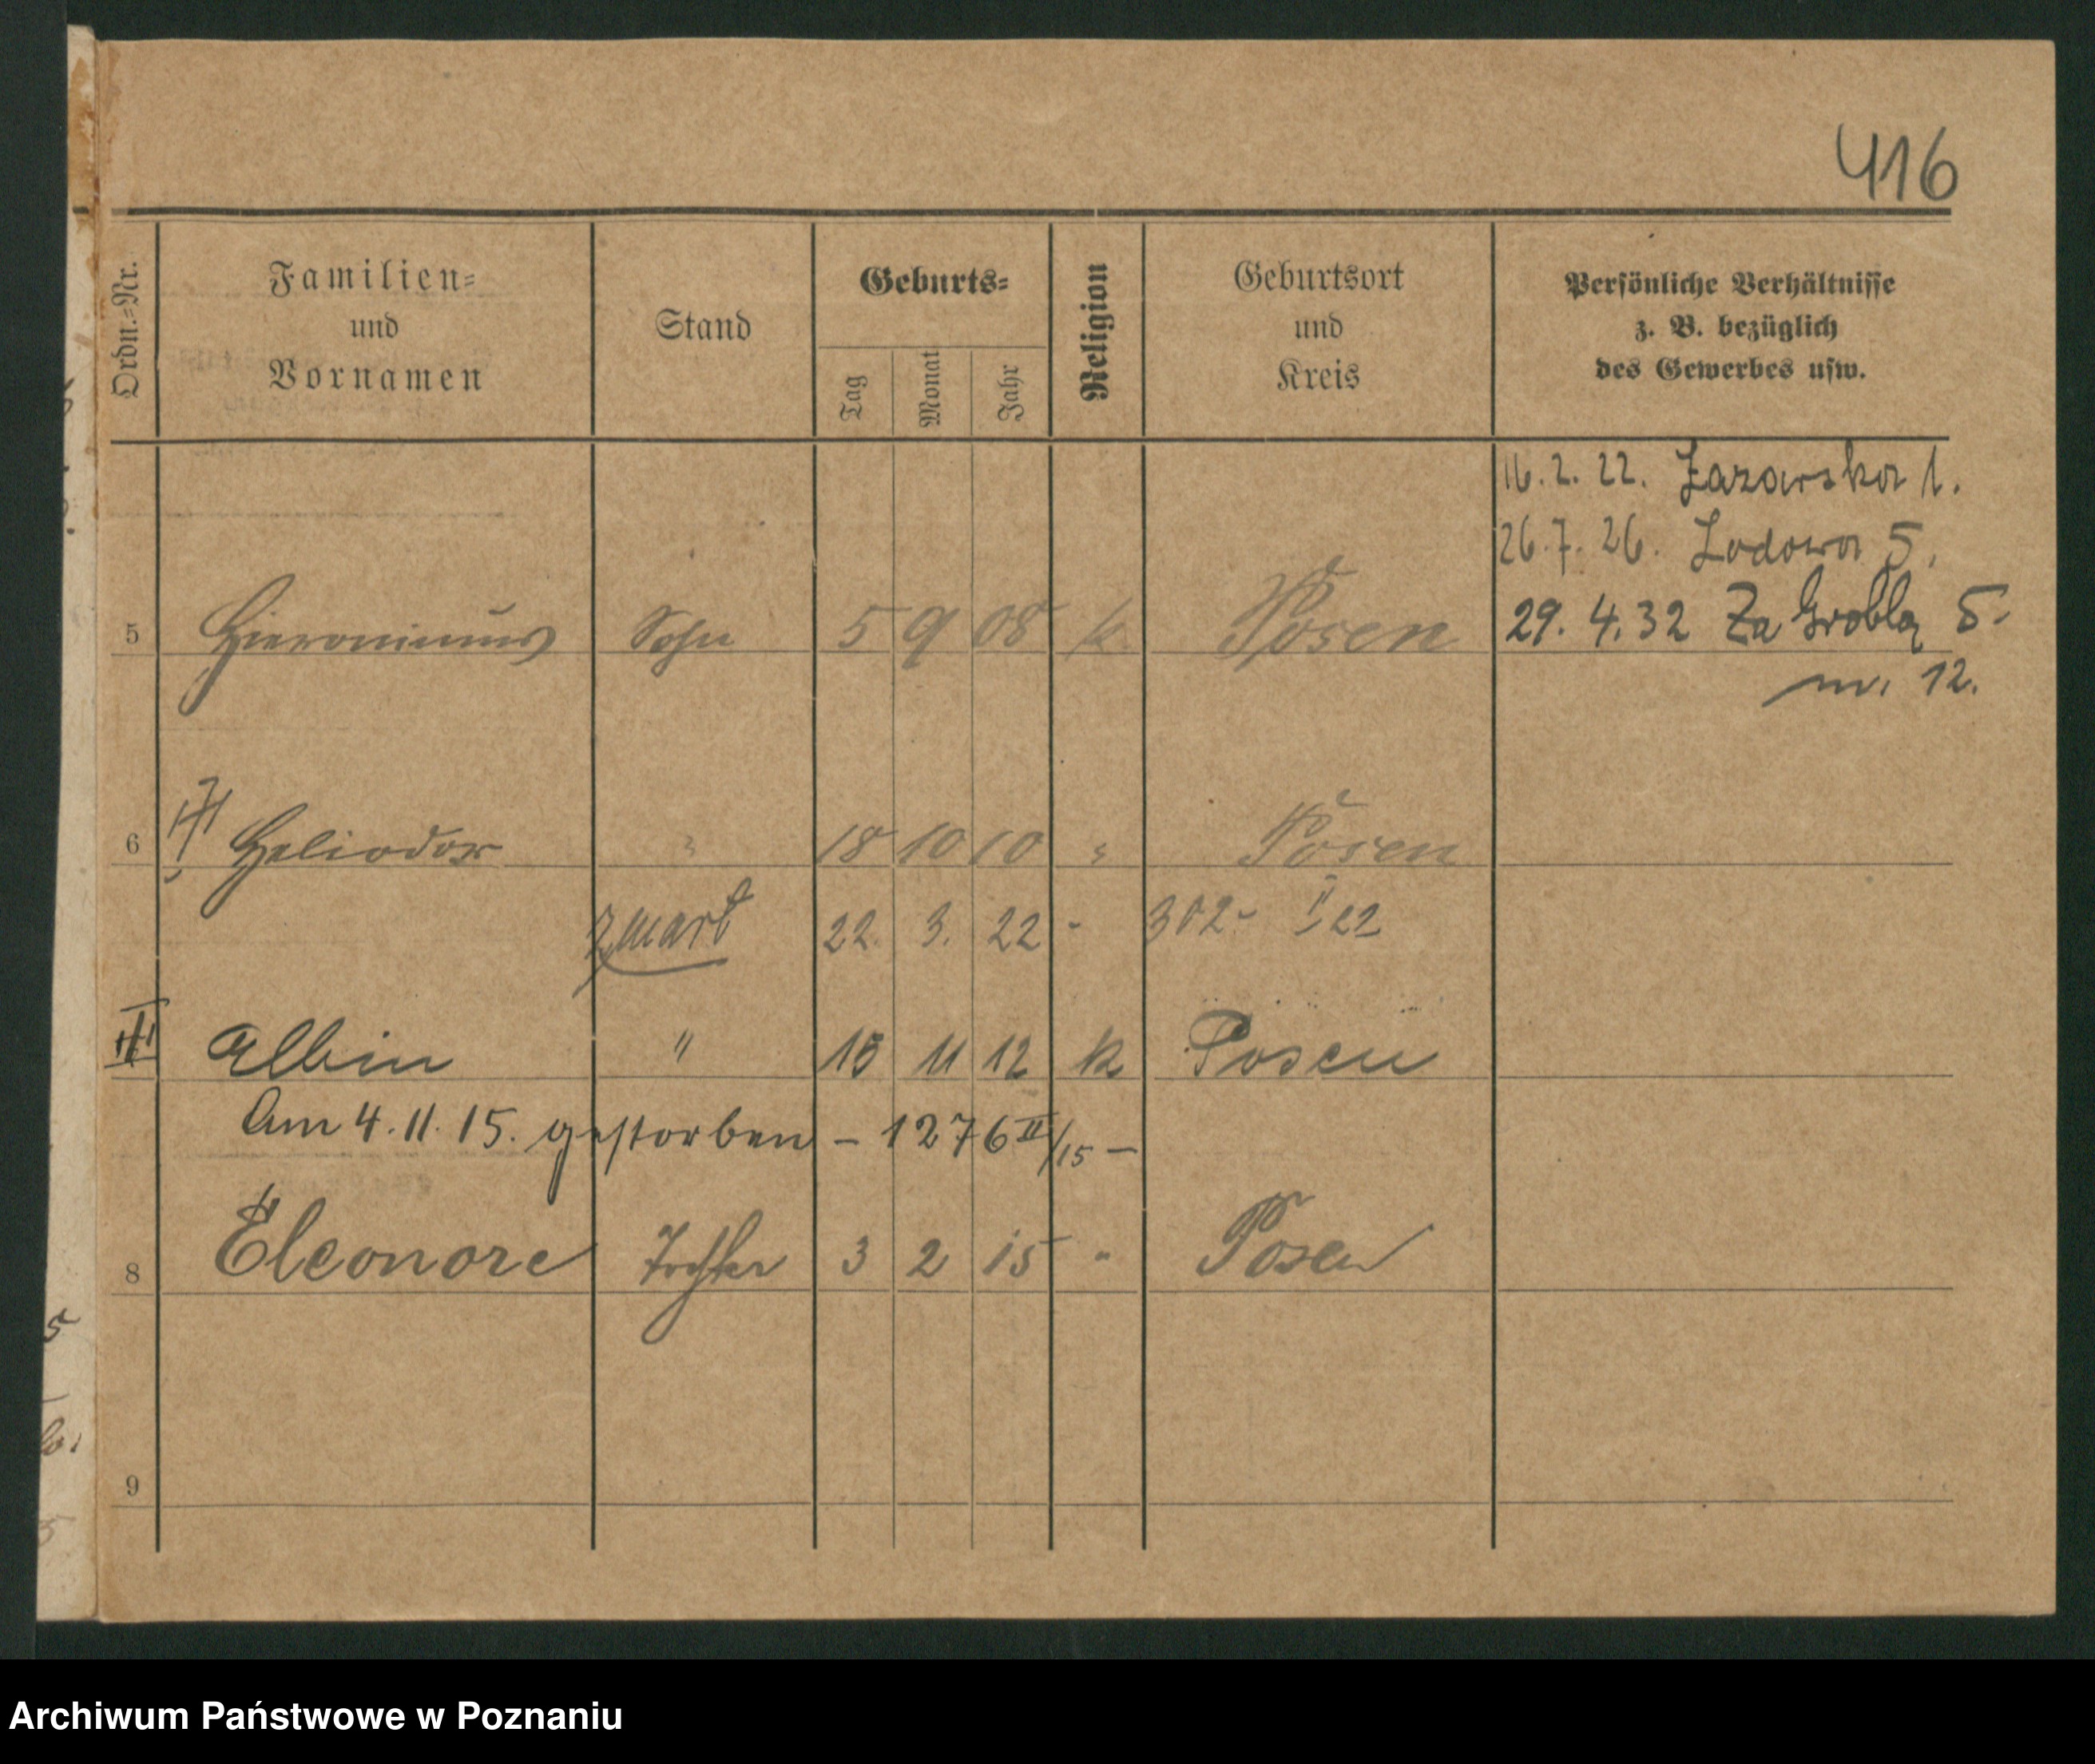 416
Ordn.-Nr.
Familien-
und
Vornamen
Stand
Geburts-
Tag
Monat
Jahr
Religion
Geburtsort
und
Kreis
Persönliche Verhältnisse
z. B. bezüglich
des Gewerbes usw.
16. 2. 22. Łazarska 1.
26. 7. 26. Lodowa 5.
5 Hieronimus Sohn 5 9 08 k. Posen 29. 4. 32 Za Groblą 5.
m. 12.
6 Heliodor " 18 10 10 " Posen
zmarł 22. 3. 22 - 302 - I 22
Albin " 15 11 12 k Posen
Am 4. 11. 15. gestorben – 1276 II/15 –
8 Eleonore Tochter 3 2 15 " Posen
9
Archiwum Państwowe w Poznaniu